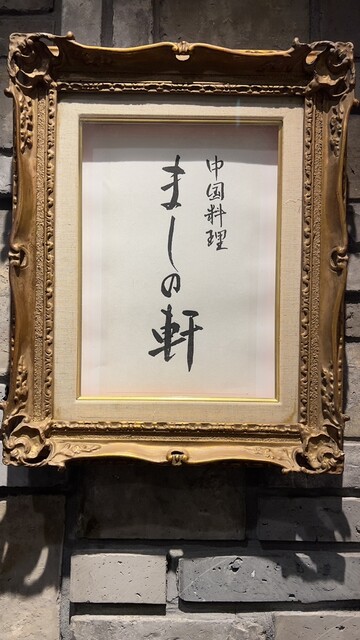 中国料理
ましの軒